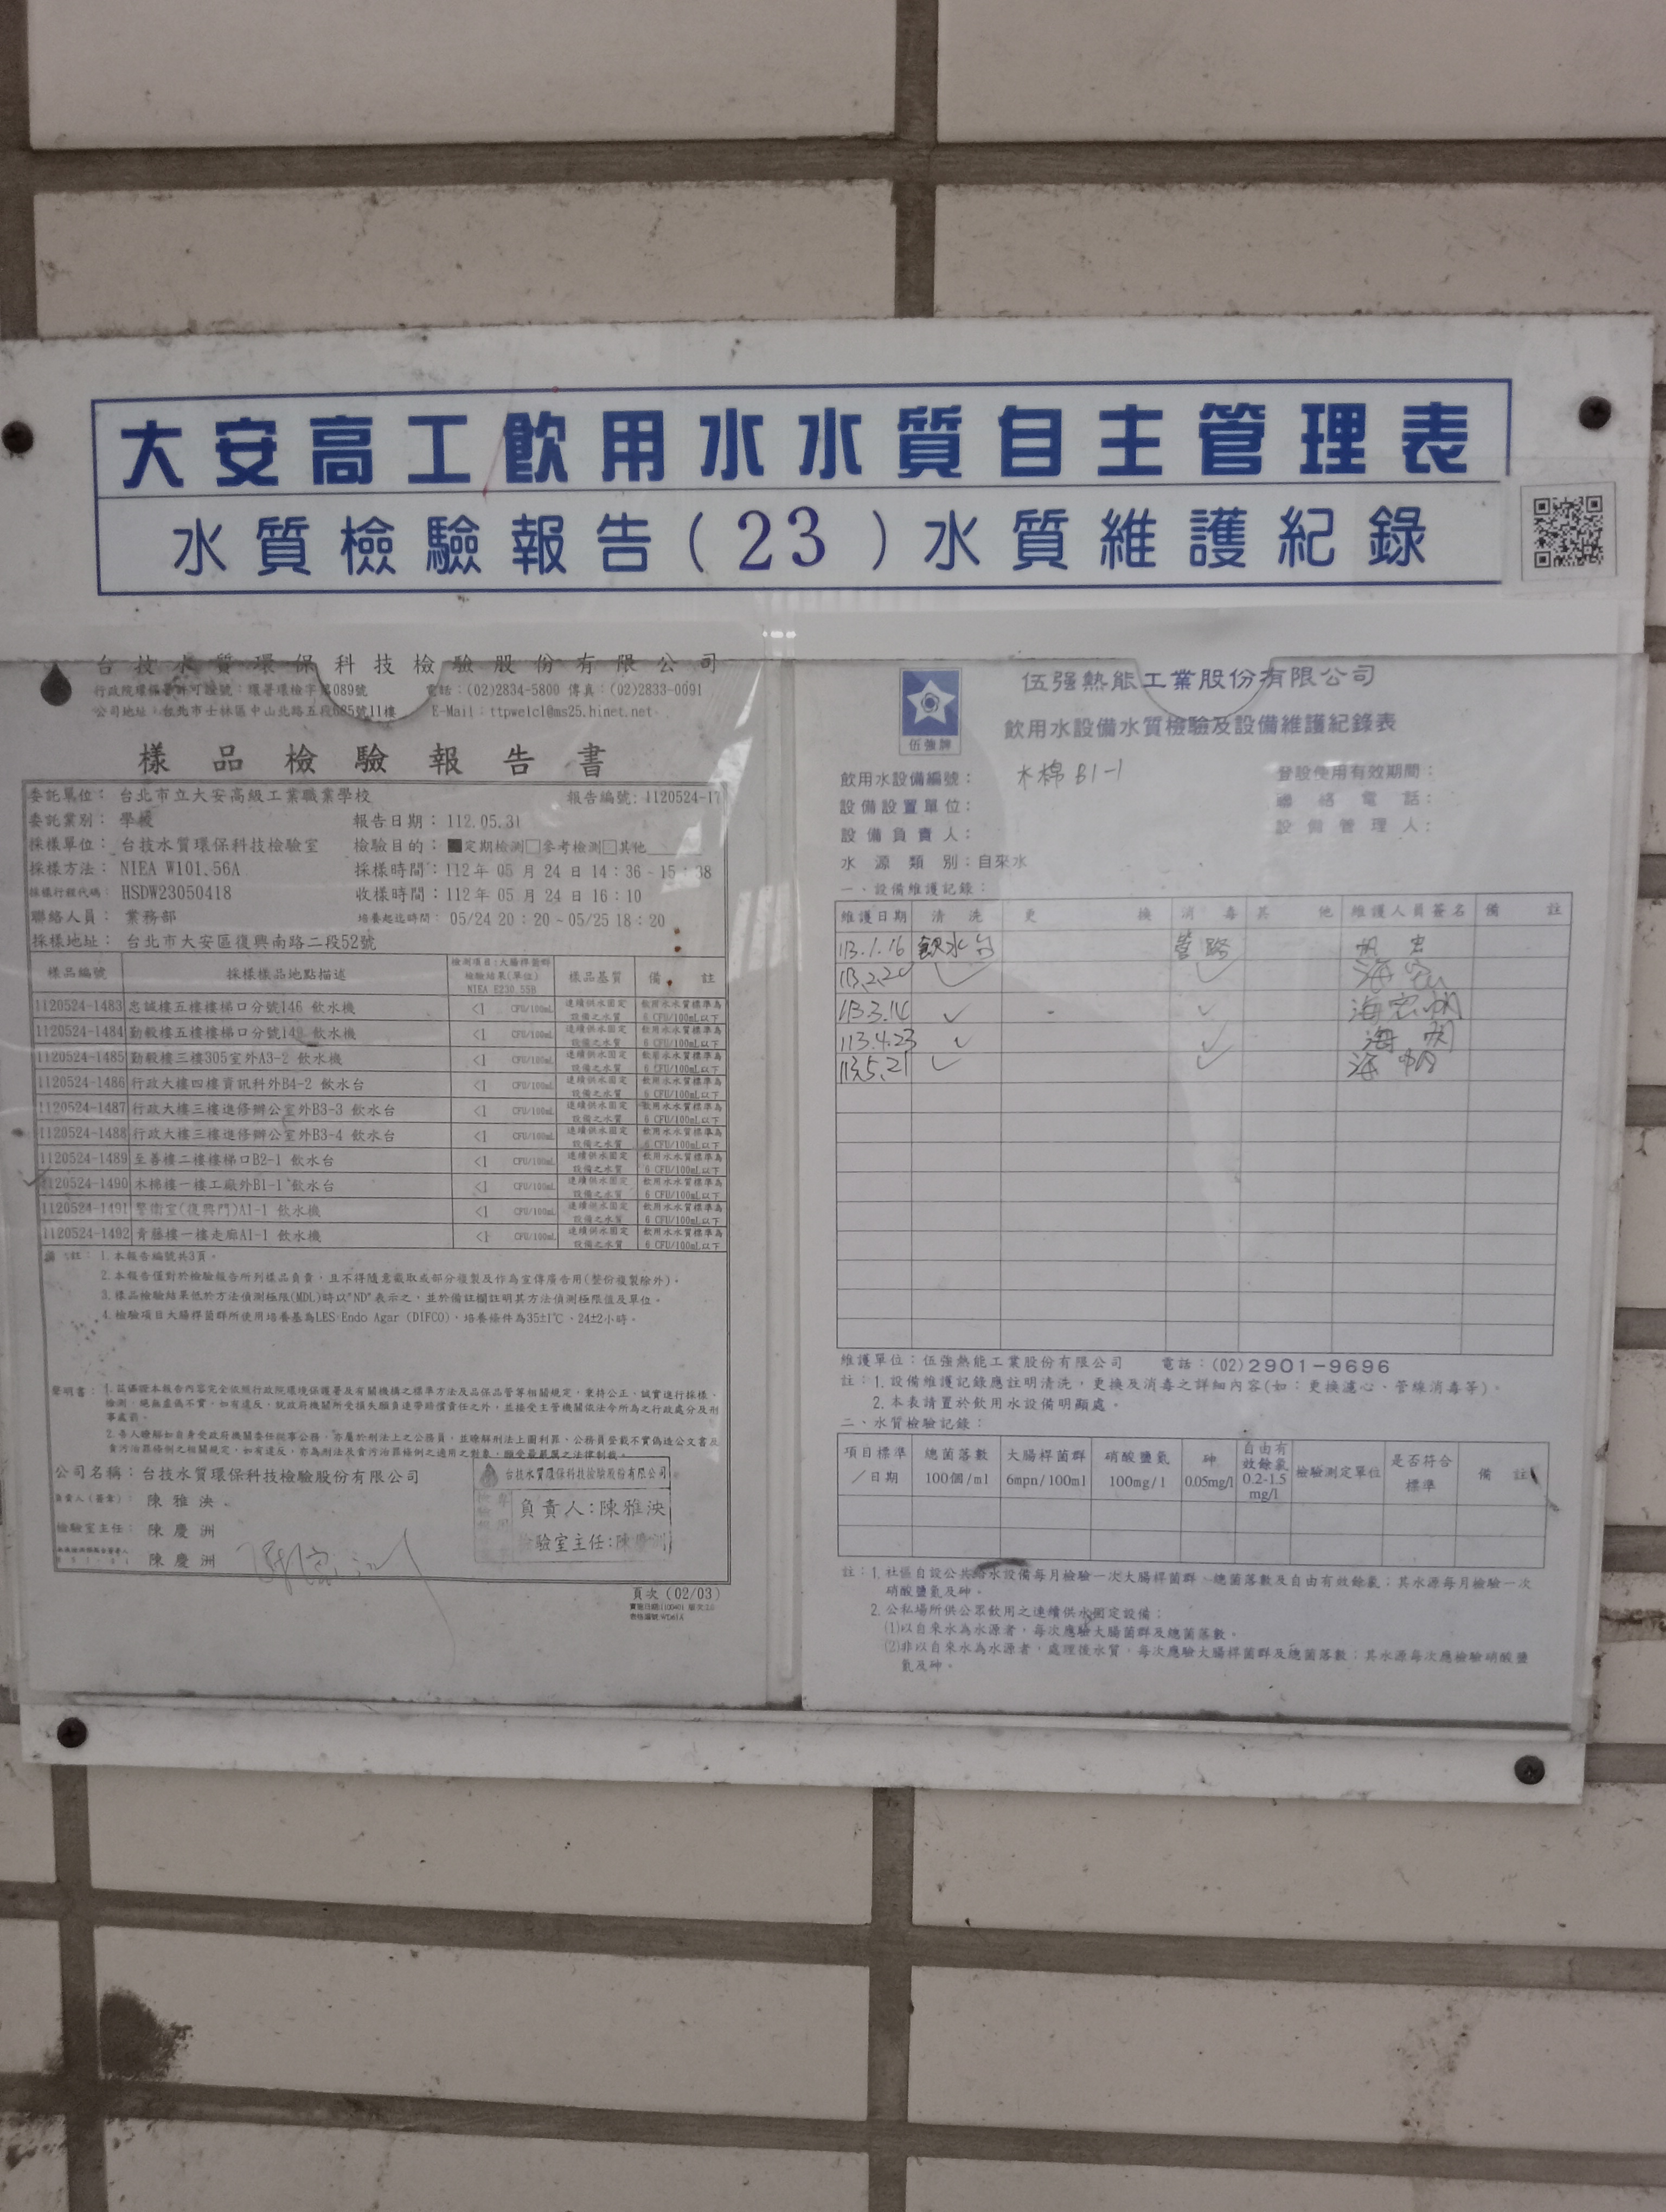 大安高工飲用水水質自主管理表
水質檢驗報告(23)水質維護紀錄
台技水質環保科技檢驗股份有限公司
行政院環保署許可證號：環署環檢字第089號 電話：(02)2834-5800 傳真：(02)2833-0091
公司地址：台北市士林區中山北路五段685號11樓 E-Mail：ttpwelcl@ms25.hinet.net
樣品檢驗報告書
委託單位： 台北市立大安高級工業職業學校 報告編號：1120524-17
委託業別： 學校 報告日期：112.05.31
採樣單位： 台技水質環保科技檢驗室 檢驗目的：■定期檢測□參考檢測□其他
採樣方法： NIEA W101.56A 採樣時間：112年 05 月 24 日 14：36~15：38
採樣行程代碼： HSDW23050418 收樣時間：112年 05 月 24 日 16：10
聯絡人員： 業務部 培養起迄時間： 05/24 20：20~05/25 18：20
採樣地址： 台北市大安區復興南路二段52號
樣品編號 採樣樣品地點描述 檢測項目：大腸桿菌群 檢驗結果(單位) NIEA E230.55B 樣品基質 備 註
1120524-1483 忠誠樓五樓樓梯口分號146 飲水機 <1 CFU/100mL 連續供水固定設備之水質 飲用水水質標準為6 CFU/100mL以下
1120524-1484 勤毅樓五樓樓梯口分號149 飲水機 <1 CFU/100mL 連續供水固定設備之水質 飲用水水質標準為6 CFU/100mL以下
1120524-1485 勤毅樓三樓305室外A3-2 飲水機 <1 CFU/100mL 連續供水固定設備之水質 飲用水水質標準為6 CFU/100mL以下
1120524-1486 行政大樓四樓資訊科外B4-2 飲水台 <1 CFU/100mL 連續供水固定設備之水質 飲用水水質標準為6 CFU/100mL以下
1120524-1487 行政大樓三樓進修辦公室外B3-3 飲水台 <1 CFU/100mL 連續供水固定設備之水質 飲用水水質標準為6 CFU/100mL以下
1120524-1488 行政大樓三樓進修辦公室外B3-4 飲水台 <1 CFU/100mL 連續供水固定設備之水質 飲用水水質標準為6 CFU/100mL以下
1120524-1489 至善樓二樓樓梯口B2-1 飲水台 <1 CFU/100mL 連續供水固定設備之水質 飲用水水質標準為6 CFU/100mL以下
1120524-1490 木棉樓一樓工廠外B1-1 飲水台 <1 CFU/100mL 連續供水固定設備之水質 飲用水水質標準為6 CFU/100mL以下
1120524-1491 警衛室(復興門)A1-1 飲水機 <1 CFU/100mL 連續供水固定設備之水質 飲用水水質標準為6 CFU/100mL以下
1120524-1492 青藤樓一樓走廊A1-1 飲水機 <1 CFU/100mL 連續供水固定設備之水質 飲用水水質標準為6 CFU/100mL以下
備 註： 1.本報告編號共3頁。
2.本報告僅對於檢驗報告所列樣品負責，且不得隨意截取或部分複製及作為宣傳廣告用(整份複製除外)。
3.樣品檢驗結果低於方法偵測極限(MDL)時以"ND"表示之，並於備註欄註明其方法偵測極限值及單位。
4.檢驗項目大腸桿菌群所使用培養基為LES Endo Agar (DIFCO)，培養條件為35±1℃、24±2小時。
聲明書： 1.茲保證本報告內容完全依照行政院環境保護署及有關機構之標準方法及品保品管等相關規定，秉持公正、誠實進行採樣、
檢測。絕無虛偽不實，如有違反，就政府機關所受損失願負連帶賠償責任之外，並接受主管機關依法令所為之行政處分及刑
事處罰。
2.吾人瞭解如自身受政府機關委任從事公務，亦屬於刑法上之公務員，並瞭解刑法上圖利罪、公務員登載不實偽造公文書及
貪污治罪條例之相關規定，如有違反，亦為刑法及貪污治罪條例之適用之對象，願受最嚴厲之法律制裁。
公司名稱：台技水質環保科技檢驗股份有限公司
負責人(簽章)： 陳雅泱
檢驗室主任： 陳慶洲
陳慶洲
台技水質環保科技檢驗股份有限公司
負責人：陳雅泱
檢驗室主任：陳慶洲
頁次 (02/03)
伍強牌
伍強熱能工業股份有限公司
飲用水設備水質檢驗及設備維護紀錄表
飲用水設備編號： 木棉 B1-1 登設使用有效期間：
設備設置單位： 聯絡電話：
設備負責人： 設備管理人：
水源類別：自來水
一、設備維護記錄：
維護日期 清洗 更換 消毒 其他 維護人員簽名 備註
113.1.16 飲水台 管路
113.2.20 ✓ ✓
113.3.14 ✓ ✓
113.4.23 ✓ ✓
113.5.21 ✓ ✓
維護單位：伍強熱能工業股份有限公司 電話：(02)2901-9696
註：1.設備維護記錄應註明清洗，更換及消毒之詳細內容(如：更換濾心、管線消毒等)。
2.本表請置於飲用水設備明顯處。
二、水質檢驗記錄：
項目標準／日期 總菌落數 100個/ml 大腸桿菌群 6mpn/100ml 硝酸鹽氮 100mg/l 砷 0.05mg/l 自由有效餘氯 0.2-1.5 mg/l 檢驗測定單位 是否符合標準 備註
註：1.社區自設公共給水設備每月檢驗一次大腸桿菌群、總菌落數及自由有效餘氯；其水源每月檢驗一次
硝酸鹽氮及砷。
2.公私場所供公眾飲用之連續供水固定設備：
(1)以自來水為水源者，每次應驗大腸菌群及總菌落數。
(2)非以自來水為水源者，處理後水質，每次應驗大腸桿菌群及總菌落數；其水源每次應檢驗硝酸鹽
氮及砷。